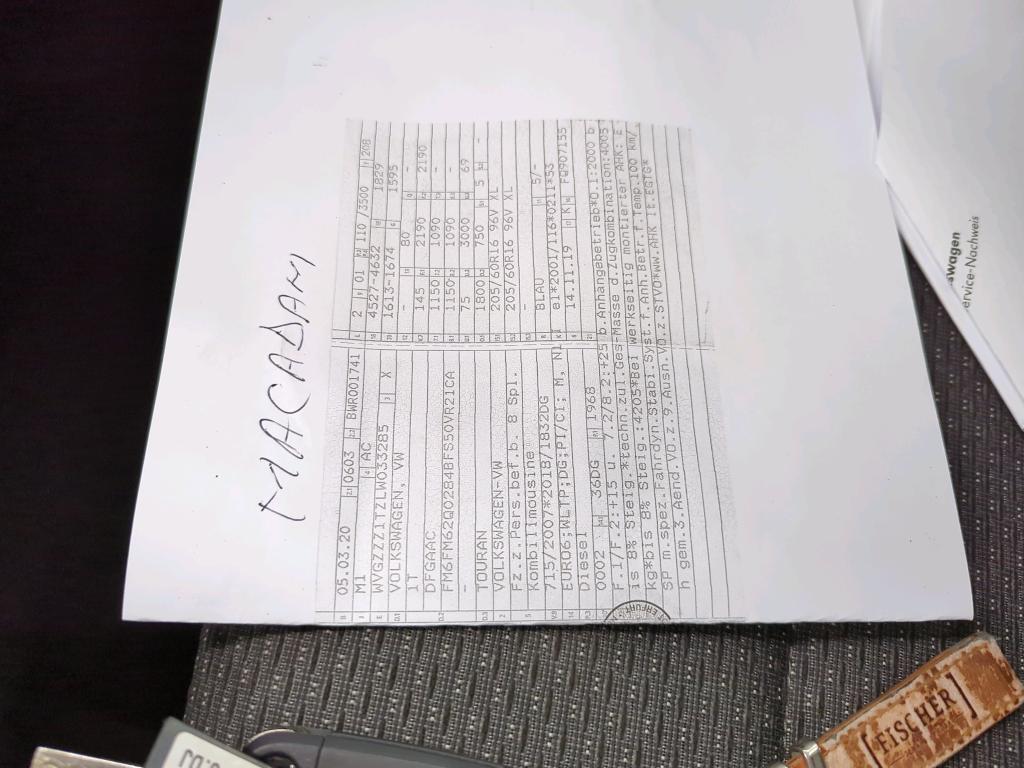 MACADAM
05.03.20 0603 BWR001741
M1 AC
WVGZZZ1TZLW033285
VOLKSWAGEN, VW X
1T
DFGAAC
FM6FM62Q0284BFS50VR21CA
-
TOURAN
VOLKSWAGEN-VW
Fz.z.Pers.bef.b. 8 Spl.
Kombilimousine
715/2007*2018/1832DG
EURO6;WLTP;DG;PI/CI; M, N1 I
Diesel
0002 36DG 1968
2 01 110 /3500 208
4527-4632 1829
1613-1674 1595
- 80 -
145 2190 2190
1150 1090 -
1150 1090 -
75 3000 69
1800 750 5 -
205/60R16 96V XL
205/60R16 96V XL
-
BLAU 5/-
e1*2001/116*0211*53
14.11.19 K FQ907155
F.1/F.2:+15 u. 7.2/8.2:+25 b.Anhangebetrieb*O.1:2000 b
is 8% Steig.*techn.zul.Ges-Masse d.Zugkombination:4005
kg*bis 8% Steig.:4205*Bei werkseitig montierter AHK: E
SP m.spez.Fahrdyn.Stabi.Syst.f.Anh.Betr.f.Temp.100 km/
h gem.3.Aend.VO.z.9.Ausn.VO.z.STVO*ww.AHK lt.EGTG*
ERFURT
swagen
ervice-Nachweis
[FISCHER]